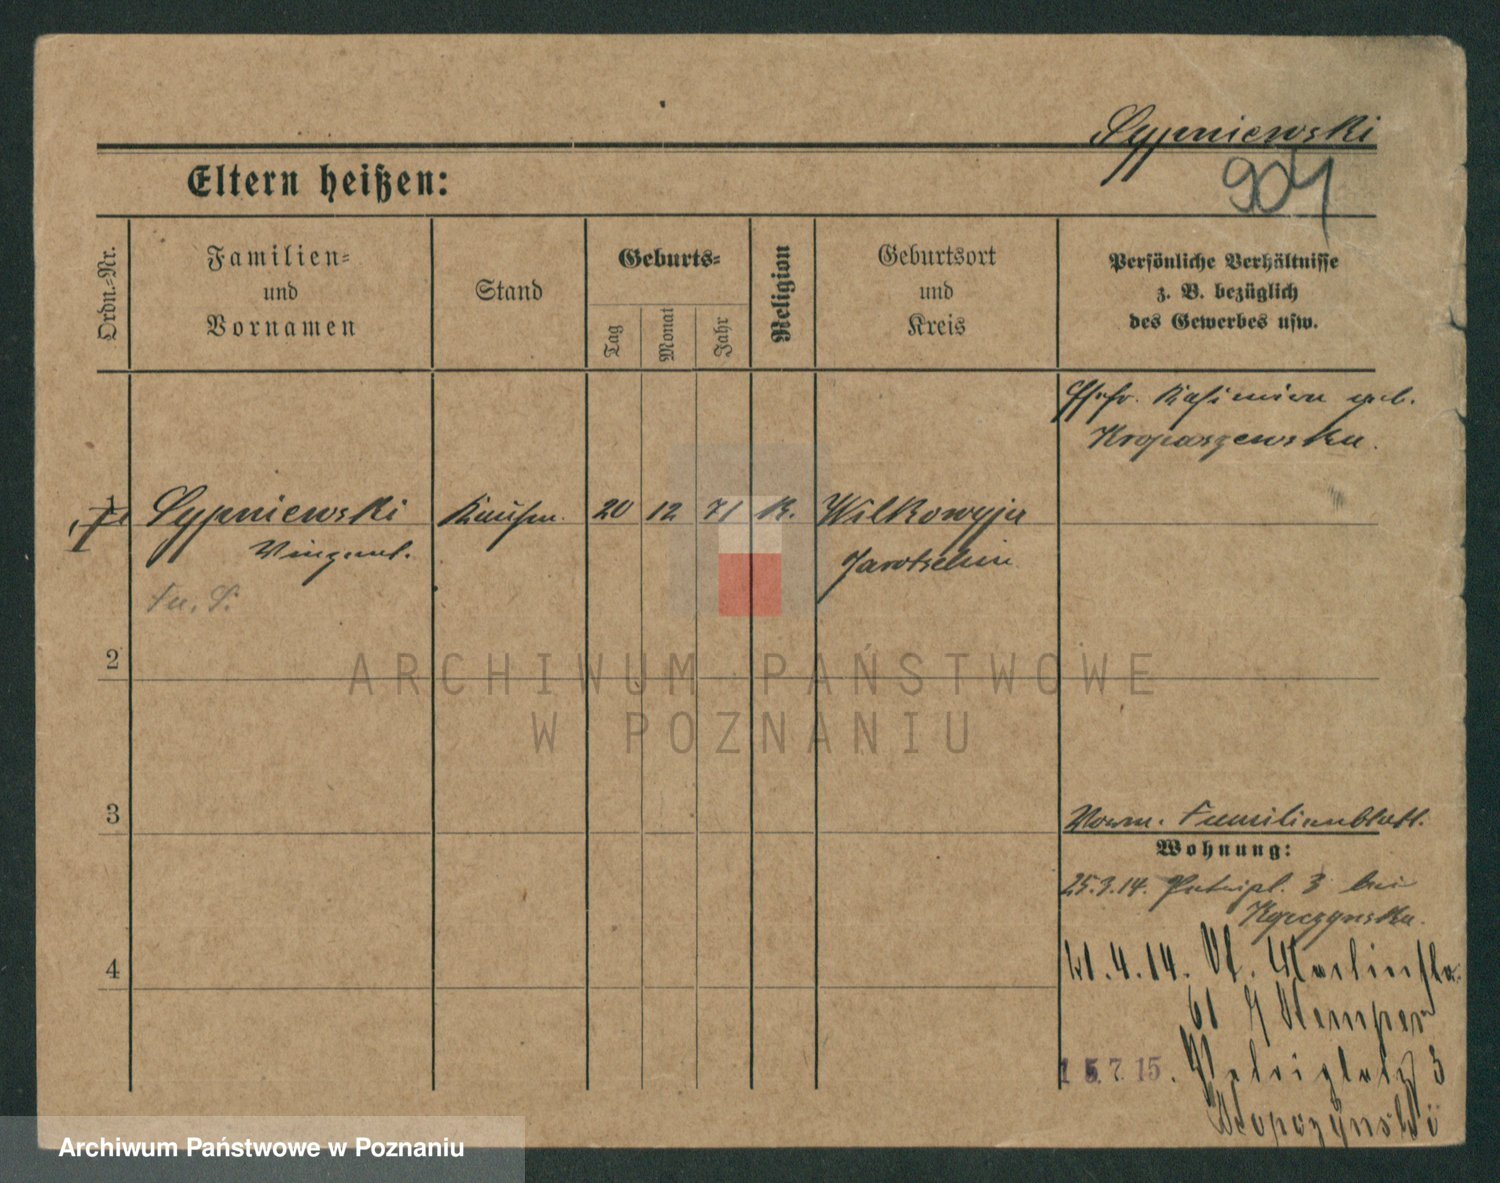 Sypniewski
904
Eltern heißen:
Ordn.-Nr.
Familien-
und
Vornamen
Stand
Geburts-
Tag
Monat
Jahr
Religion
Geburtsort
und
Kreis
Persönliche Verhältnisse
z. B. bezüglich
des Gewerbes usw.
Ehefr. Kasimira geb.
Kropaszewska.
1 Sypniewski Kaufm. 20 12 71 K. Wilkowyja
Vinzent. Jarotschin
2
ARCHIWUM PAŃSTWOWE
W POZNANIU
3
Familienblatt.
Wohnung:
25.3.14. 3 bei
4
21.4.14. St. Martinstr.
61 Stemper
15.7.15. 3
Archiwum Państwowe w Poznaniu